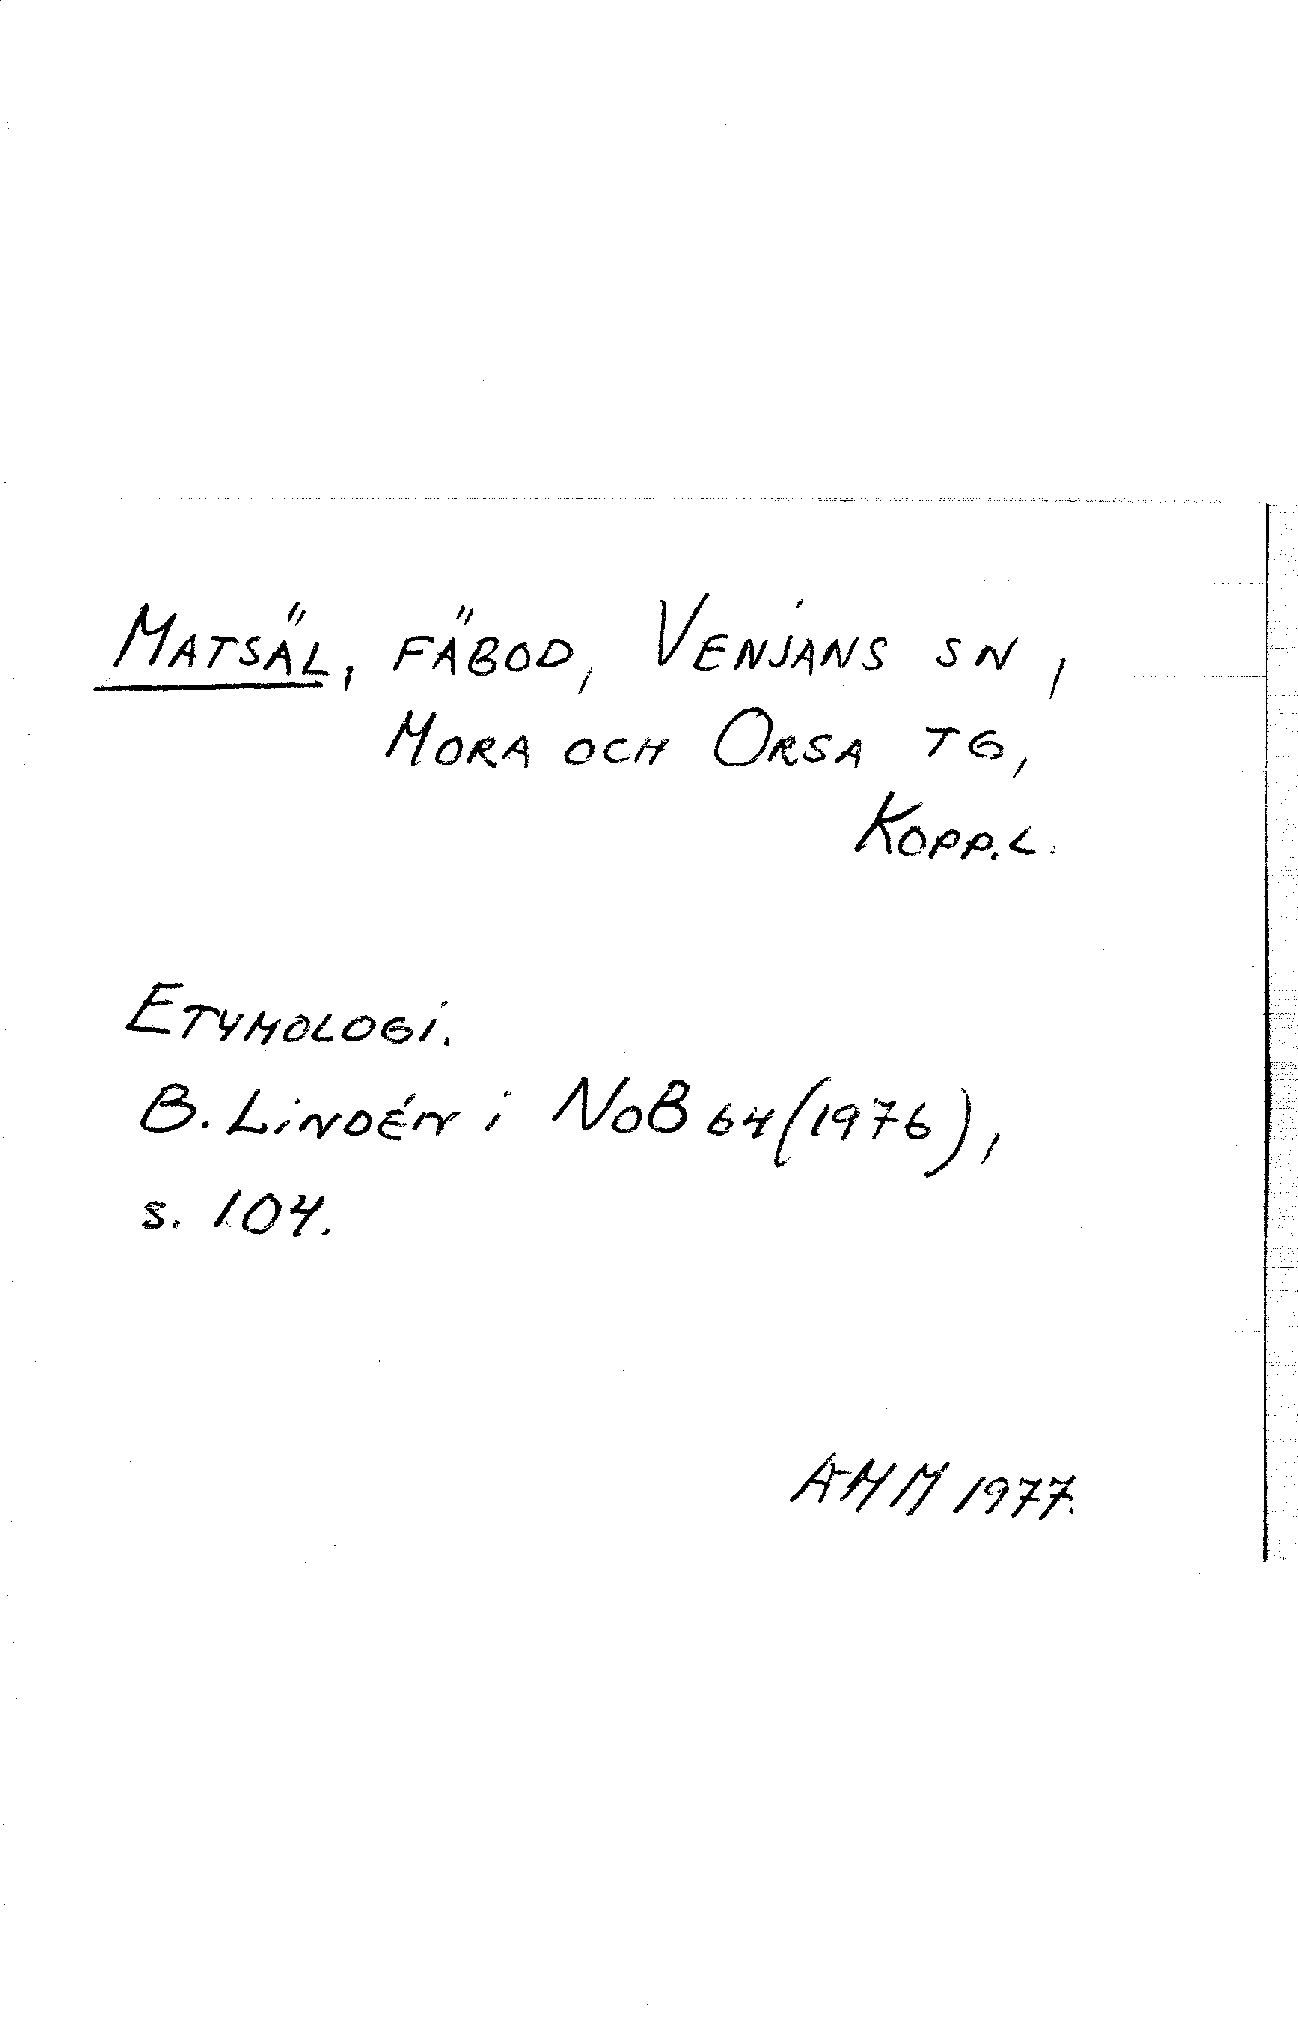 MATSÄL, FÄBOD, VENJANS SN,
MORA OCH ORSA TG,
KOPP.L.
ETYMOLOGI.
B. LINDÉN i NoB 64 (1976),
s. 104.
AMM 1977.